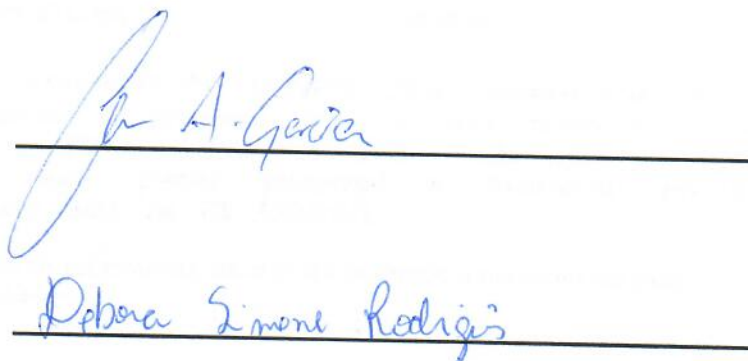 A. Garcia
Debora Simone Rodrigues